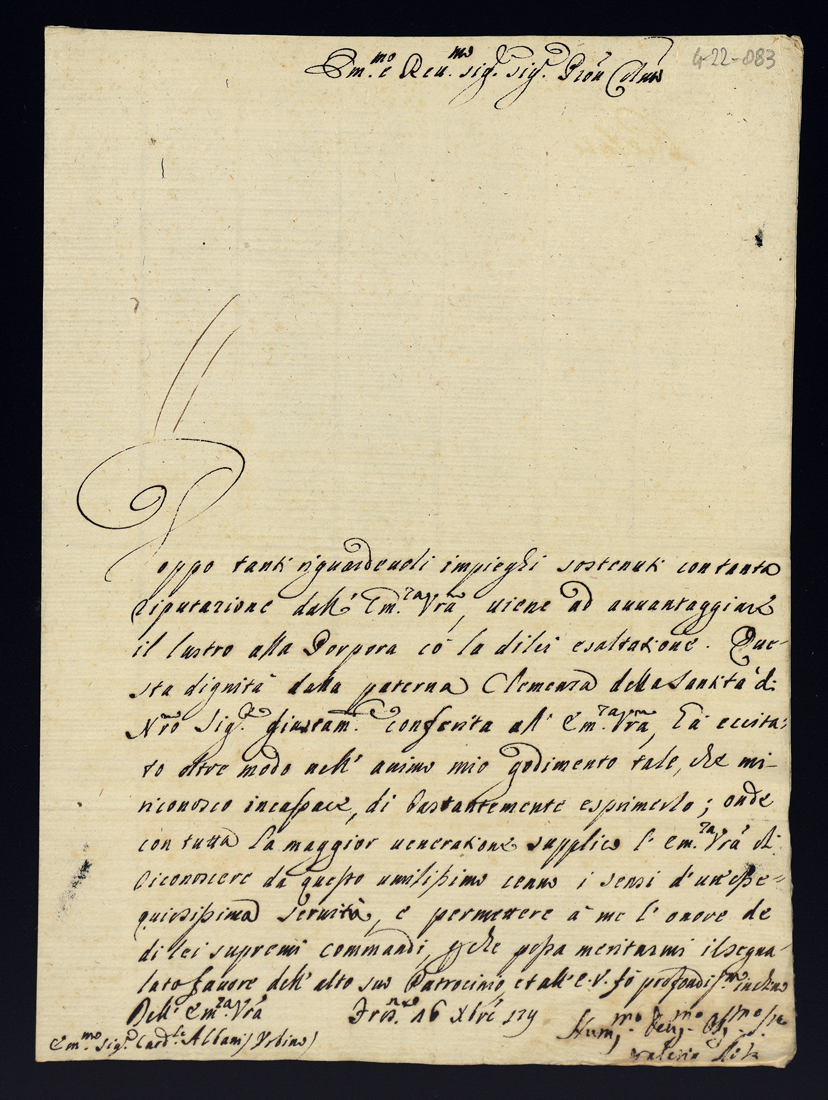 4-22-083
Em.mo e Reu.mo Sig.r Sig.r Pron Colmo
Doppo tanti riguardeuoli impieghi sostenuti con tanta
riputazione dall' Em.za Vrã, uiene ad auuantaggiare
il lustro alla Porpora cõ la di lei esaltazione. Que-
sta dignità dalla paterna Clemenza della Santità di
Nrõ Sig.re giustam.te conferita all' Em.za Vrã, hà eccita-
to oltre modo nell' animo mio godimento tale, che mi
riconosco incapace, di bastantemente esprimerlo; onde
con tutta la maggior ueneratione supplico l' Em.za Vrã di
riconoscere da questo umilissimo cenno i sensi d'un'osse-
quiosissima seruità, e permettere à me l' onore de
di lei supremi commandi, che possa meritarmi il segna-
lato fauore dell' alto suo Patrocinio et all' E.V. fò profondiss.mo inchino
Dell' Em.za Vrã 16 Xbrẽ
Hum.mo Deu.mo
Em.mo Sig.r Card.le Albani / Urbino /
Valerio